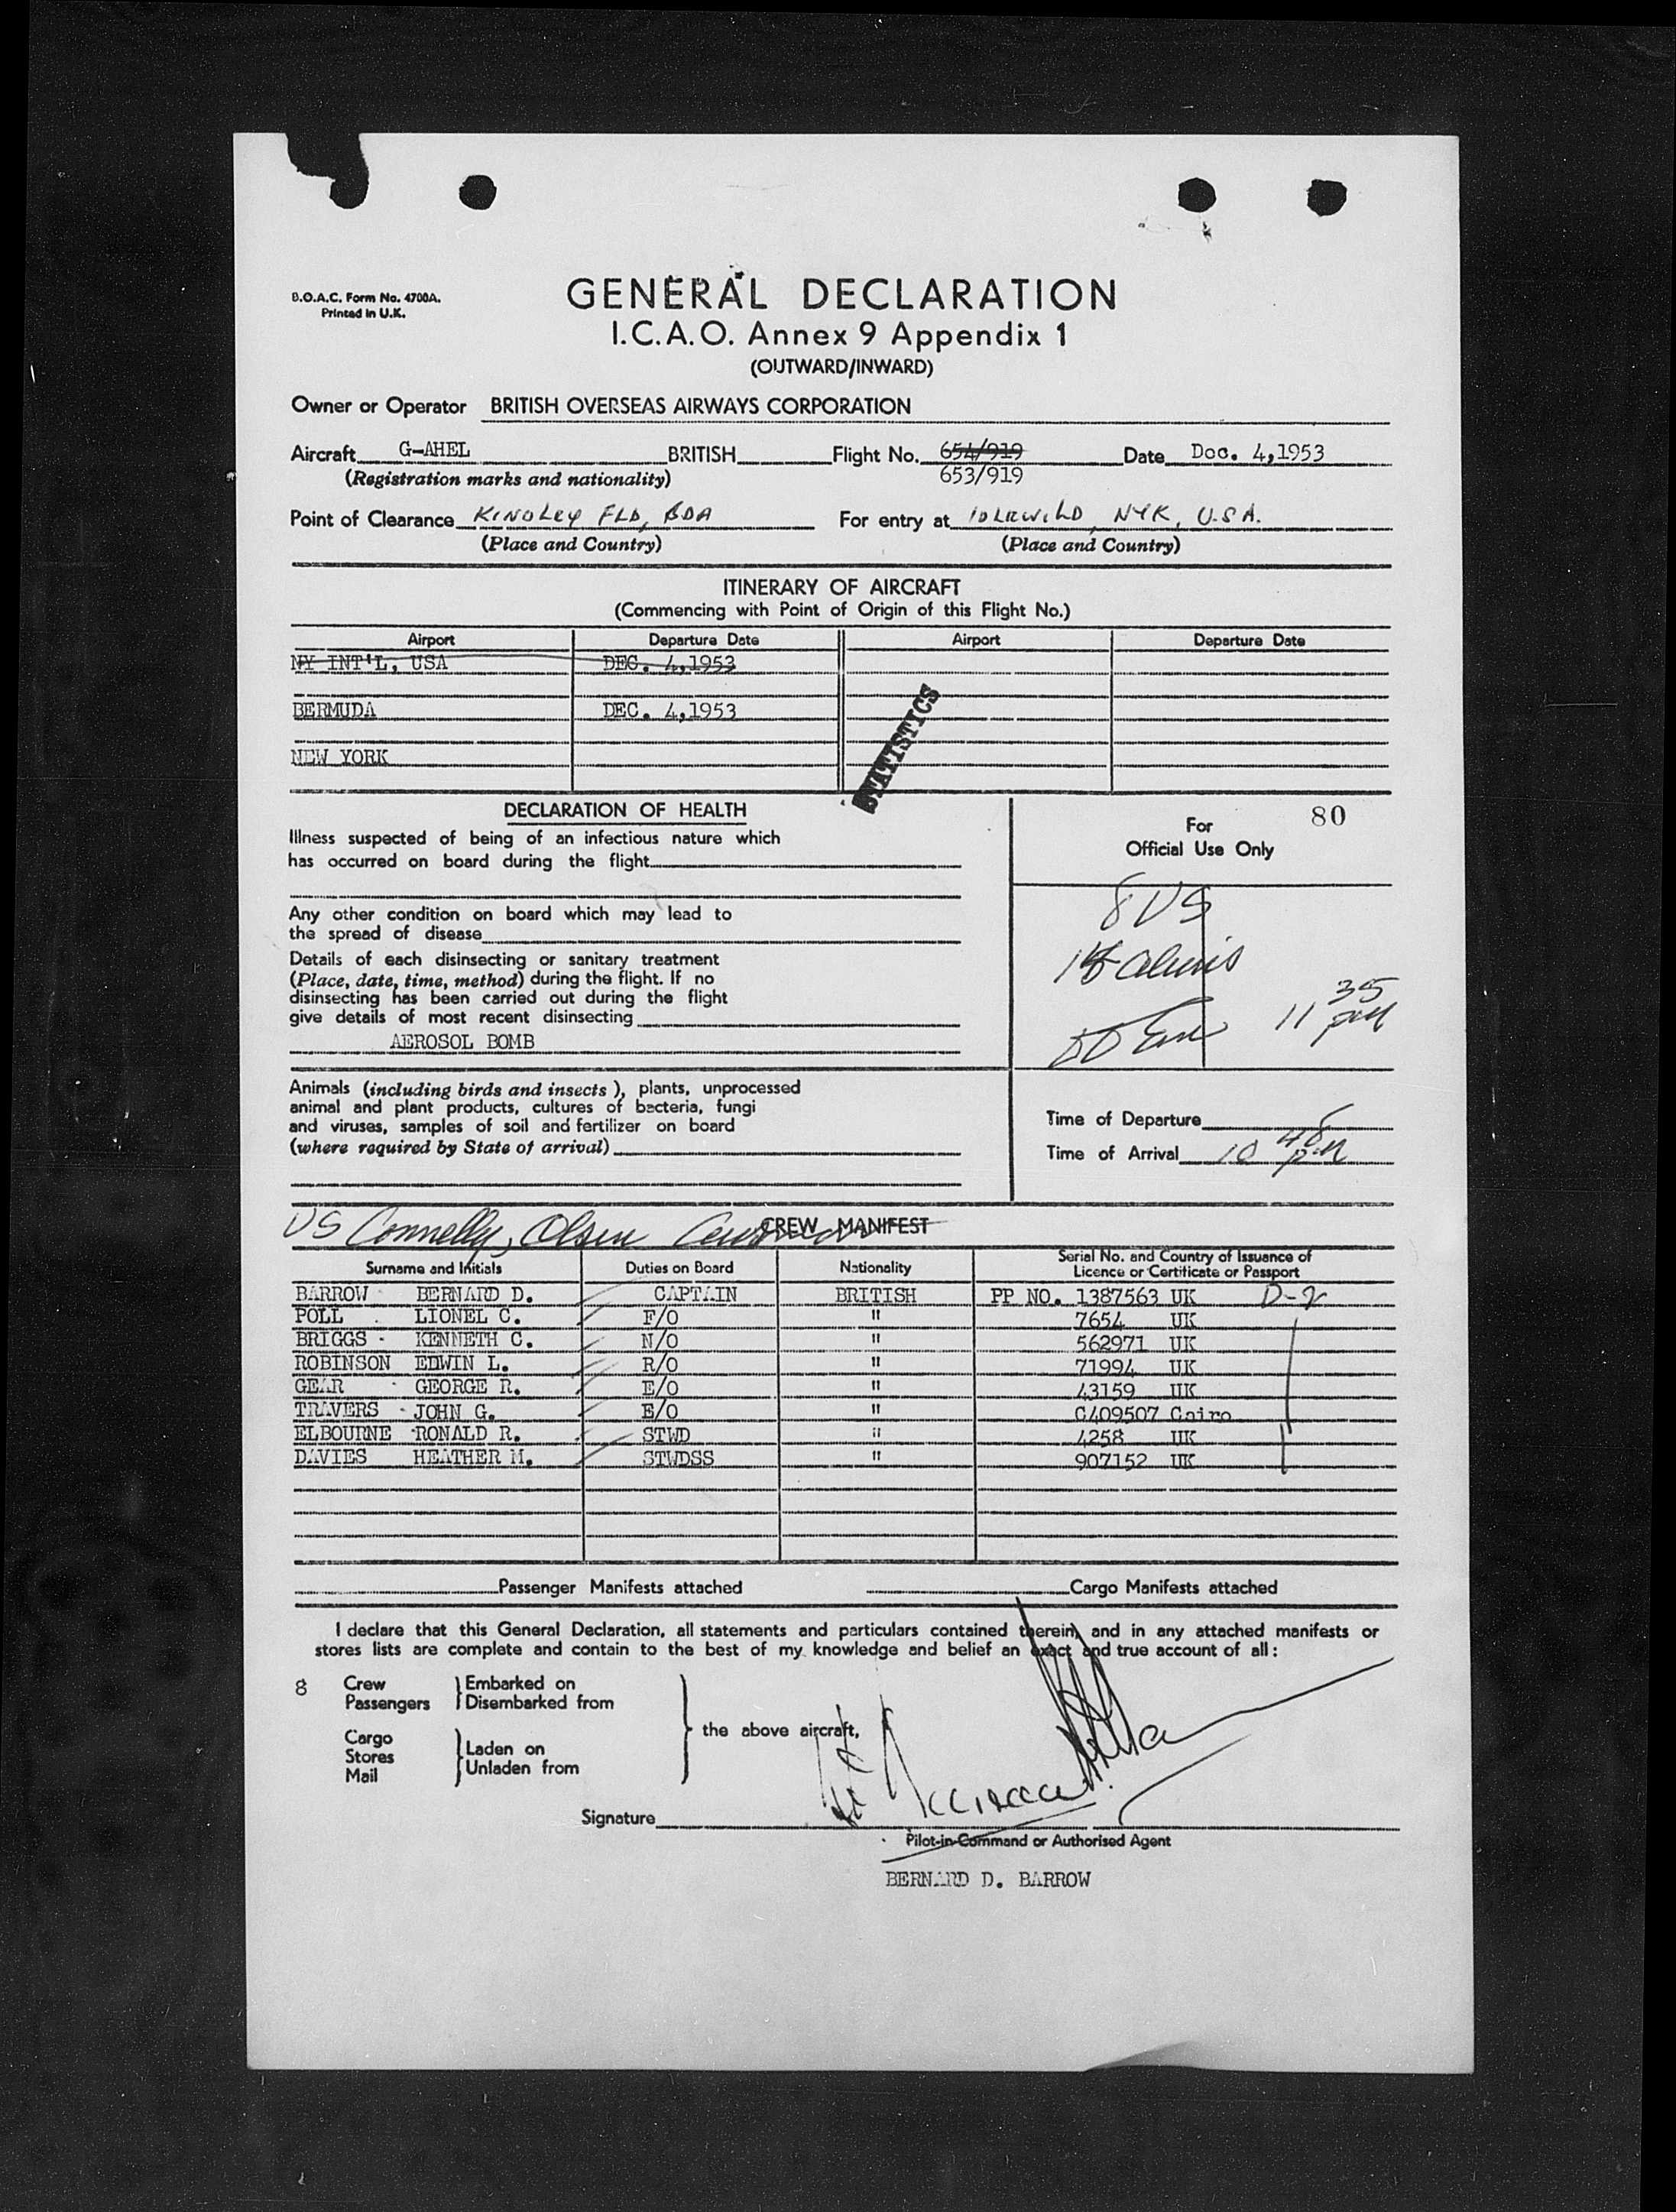 B.O.A.C. Form No. 4700A.
Printed in U.K.
GENERAL DECLARATION
I.C.A.O. Annex 9 Appendix 1
(OUTWARD/INWARD)
Owner or Operator BRITISH OVERSEAS AIRWAYS CORPORATION
Aircraft G-AHEL BRITISH Flight No. 654/919 Date Dec. 4,1953
(Registration marks and nationality) 653/919
Point of Clearance KINDLEY FLD, BDA For entry at IDLEWILD, NYK, U.S.A.
(Place and Country) (Place and Country)
ITINERARY OF AIRCRAFT
(Commencing with Point of Origin of this Flight No.)
Airport Departure Date Airport Departure Date
NY INT'L, USA DEC. 4,1953
BERMUDA DEC. 4,1953
NEW YORK
STATISTICS
DECLARATION OF HEALTH
Illness suspected of being of an infectious nature which
has occurred on board during the flight
Any other condition on board which may lead to
the spread of disease
Details of each disinsecting or sanitary treatment
(Place, date, time, method) during the flight. If no
disinsecting has been carried out during the flight
give details of most recent disinsecting
AEROSOL BOMB
Animals (including birds and insects), plants, unprocessed
animal and plant products, cultures of bacteria, fungi
and viruses, samples of soil and fertilizer on board
(where required by State of arrival)
80
For
Official Use Only
8 US
Aliens
11 35 pm
Time of Departure
Time of Arrival 10 45 pm
US Connelly, Olsen
CREW MANIFEST
Surname and Initials Duties on Board Nationality Serial No. and Country of Issuance of
Licence or Certificate or Passport
BARROW BERNARD D. CAPTAIN BRITISH PP NO. 1387563 UK D-2
POLL LIONEL C. F/O " 7654 UK
BRIGGS KENNETH C. N/O " 562971 UK
ROBINSON EDWIN L. R/O " 71994 UK
GEAR GEORGE R. E/O " 43159 UK
TRAVERS JOHN G. E/O " C409507 Cairo
ELBOURNE RONALD R. STWD " 4258 UK
DAVIES HEATHER M. STWDSS " 907152 UK
Passenger Manifests attached Cargo Manifests attached
I declare that this General Declaration, all statements and particulars contained therein, and in any attached manifests or
stores lists are complete and contain to the best of my knowledge and belief an exact and true account of all:
8 Crew Embarked on
Passengers Disembarked from
the above aircraft,
Cargo
Stores Laden on
Mail Unladen from
Signature
Pilot-in-Command or Authorised Agent
BERNARD D. BARROW